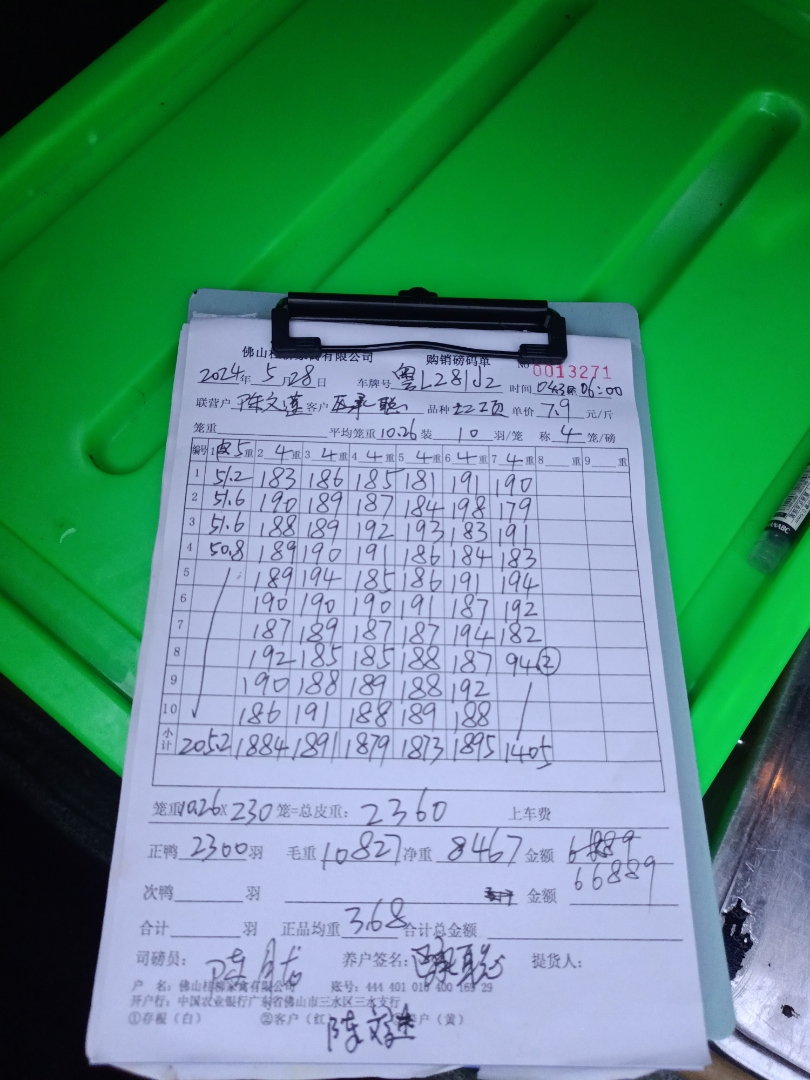 佛山桂柳家禽有限公司 购销磅码单 NO 0013271
2024年 5月28日 车牌号 粤L281d2 时间 06:00
联营户 陈文莲 客户 品种 单价 7.9 元/斤
笼重 平均笼重 10.26 装 10 羽/笼 称 4 笼/磅
编号 1 皮5重 2 4重 3 4重 4 4重 5 4重 6 4重 7 4重 8 重 9 重
1 51.2 183 186 185 181 191 190
2 51.6 190 189 187 184 198 179
3 51.6 188 189 192 193 183 191
4 50.8 189 190 191 186 184 183
5 189 194 185 186 191 194
6 190 190 190 191 187 192
7 187 189 187 187 194 182
8 192 185 185 188 187 94②
9 190 188 189 188 192
10 186 191 188 189 188
小计 205.2 1884 1891 1879 1873 1895 1405
笼重10.26×230笼=总皮重: 2360 上车费
正鸭 2300 羽 毛重 10827 净重 8467 金额
66889
次鸭 羽 金额
合计 羽 正品均重 3.68 合计总金额
司磅员: 养户签名: 提货人:
户 名: 佛山桂柳家禽有限公司 账号: 444 401 010 400 169 29
开户行: 中国农业银行广东省佛山市三水区三水支行
①存根(白) ②客户(红 养户(黄)